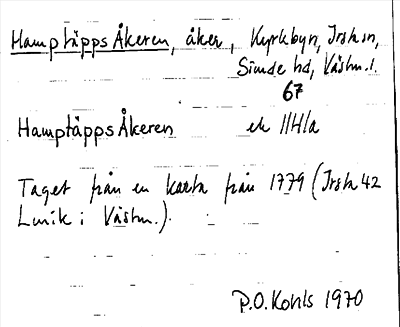 HamptäppsÅkeren, åker, Kyrkbyn, Irsta sn,
Siende hd, Västm. l.
67
HamptäppsÅkeren ek 11H1a
Taget från en karta från 1779 (Irsta 42
Lmk i Västm.).
P.O. Kohls 1970